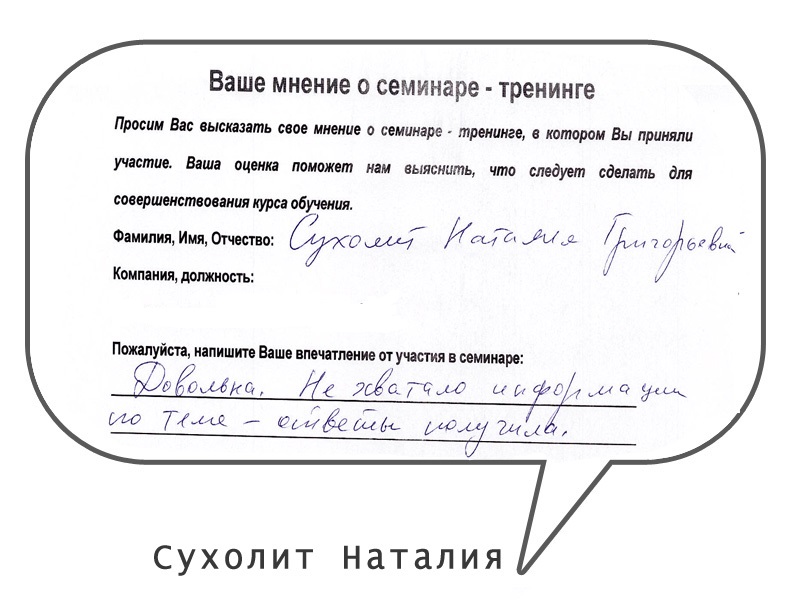 Ваше мнение о семинаре - тренинге
Просим Вас высказать свое мнение о семинаре - тренинге, в котором Вы приняли
участие. Ваша оценка поможет нам выяснить, что следует сделать для
совершенствования курса обучения.
Фамилия, Имя, Отчество: Сухолит Наталия Григорьевна
Компания, должность:
Пожалуйста, напишите Ваше впечатление от участия в семинаре:
Довольна. Не хватало информации
по теме – ответы получила.
Сухолит Наталия